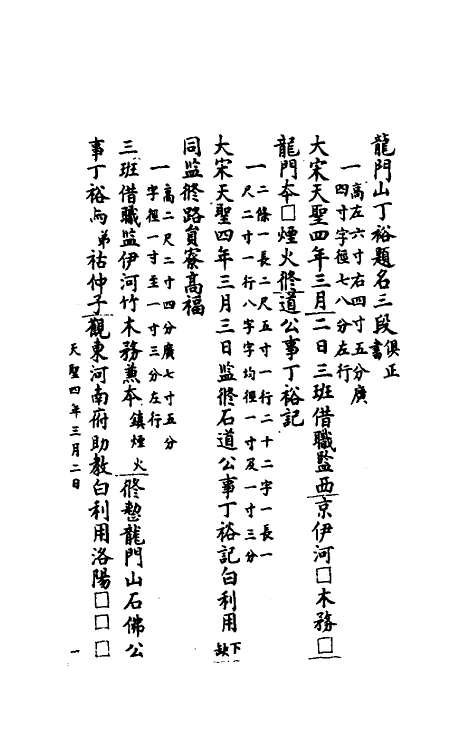 龍門山丁裕題名三段俱正書
一高左六寸右四寸五分廣四寸字徑七八分左行
大宋天聖四年三月二日三班借職監西京伊河□木務□
龍門夲□煙火俢道公事丁裕記
一二條一長二尺五寸一行二十二字一長一尺二寸一行八字字均徑一寸及一寸三分
大宋天聖四年三月三日監俢石道公事丁裕記白利用下缺
同監俢路貟寮高福
一高二尺二寸四分廣七寸五分字徑一寸至一寸三分左行
三班借職監伊河竹木務蒹夲鎮煙火俢㔢龍門山石佛公
事丁裕㒳弟祜仲子觀東河南府助教白利用洛陽□□□
天聖四年三月二日
一